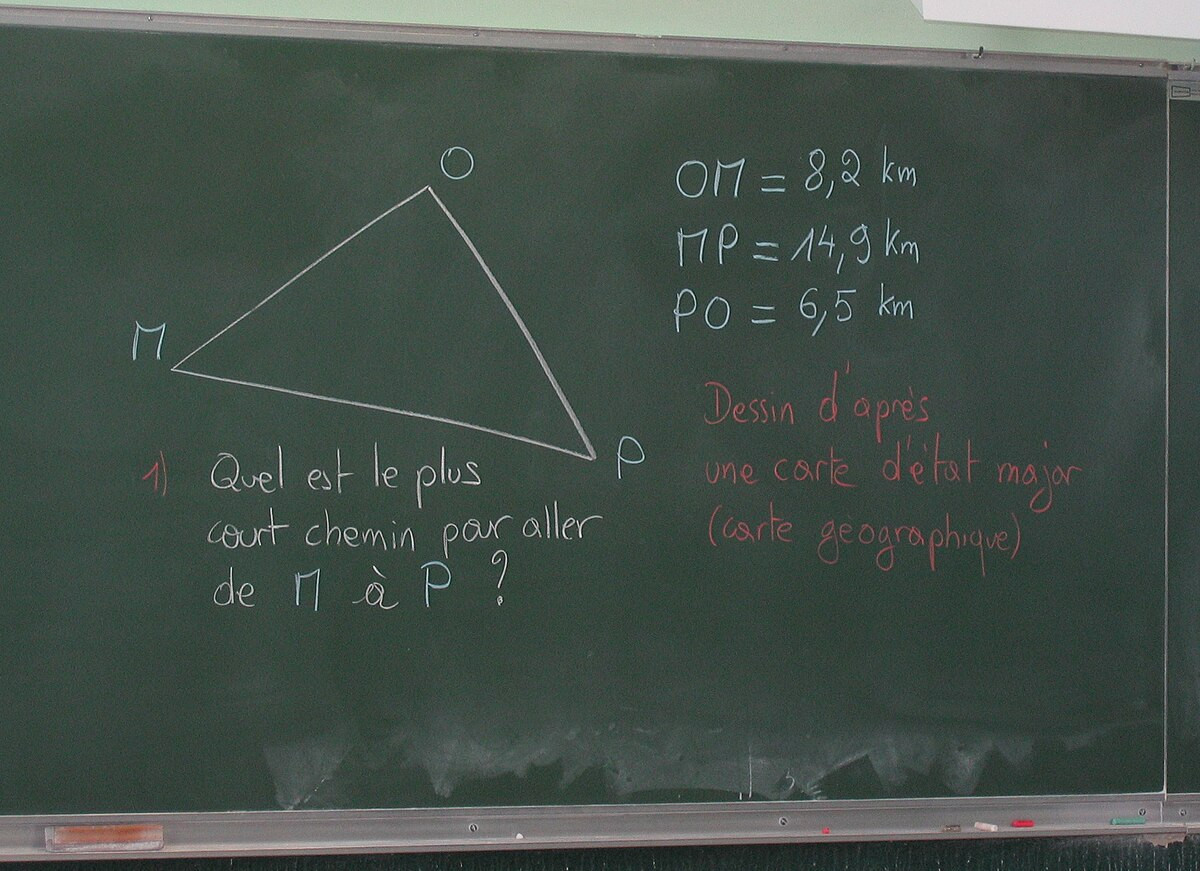 O
M
P
OM = 8,2 km
MP = 14,9 km
PO = 6,5 km
1) Quel est le plus
court chemin par aller
de M à P ?
Dessin d'après
une carte d'état major
(carte géographique)